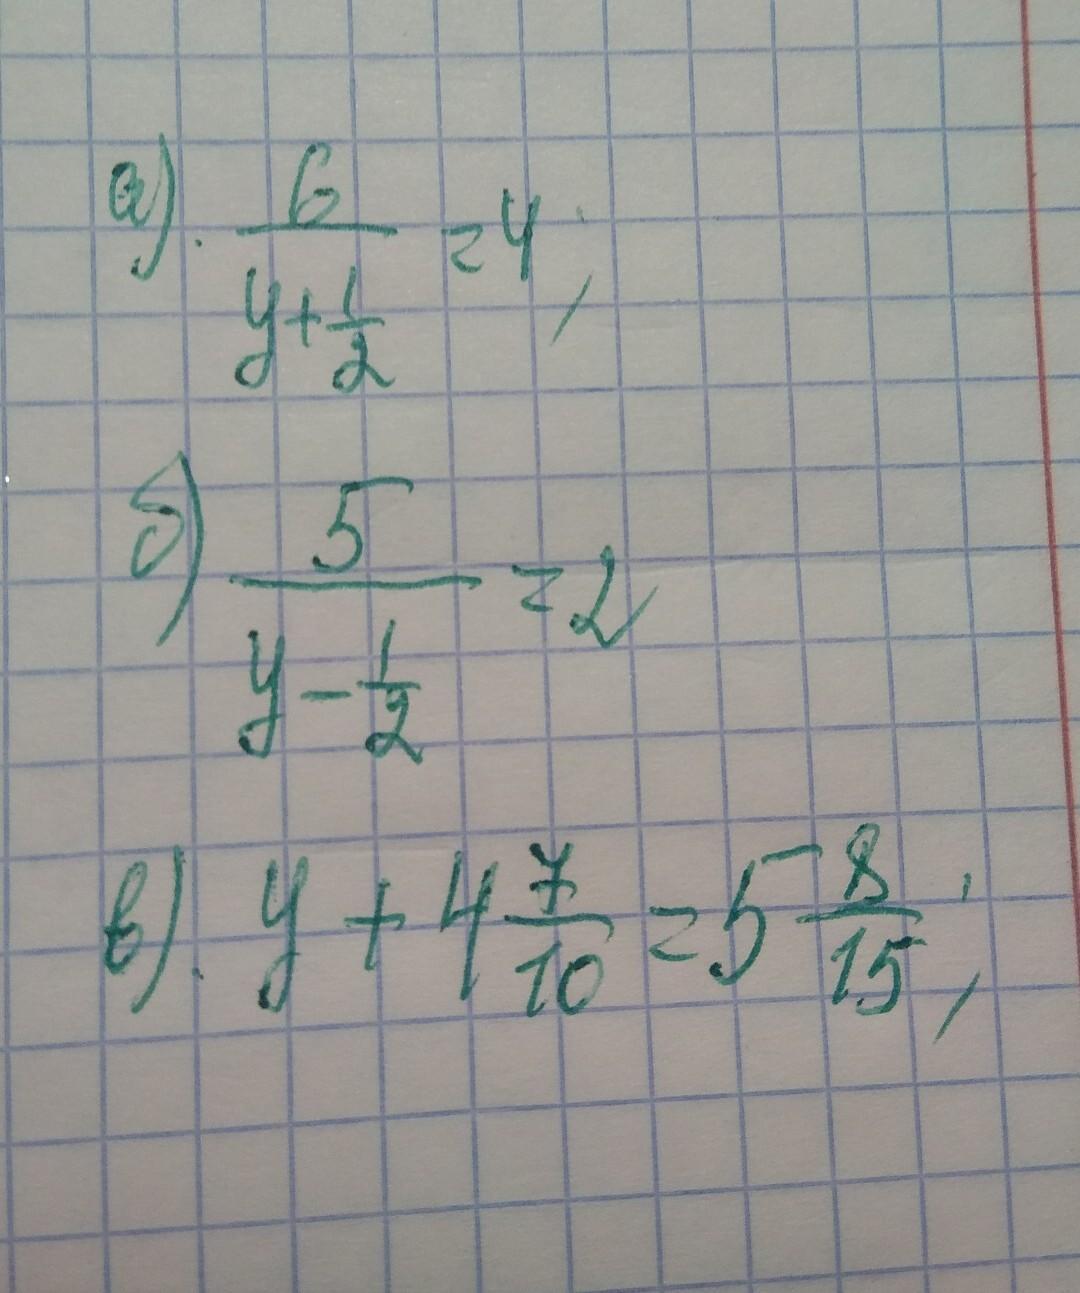 а). 6/(y+1/2) =4;
б) 5/(y-1/2) =2
в). y + 4 7/10 =5 8/15;